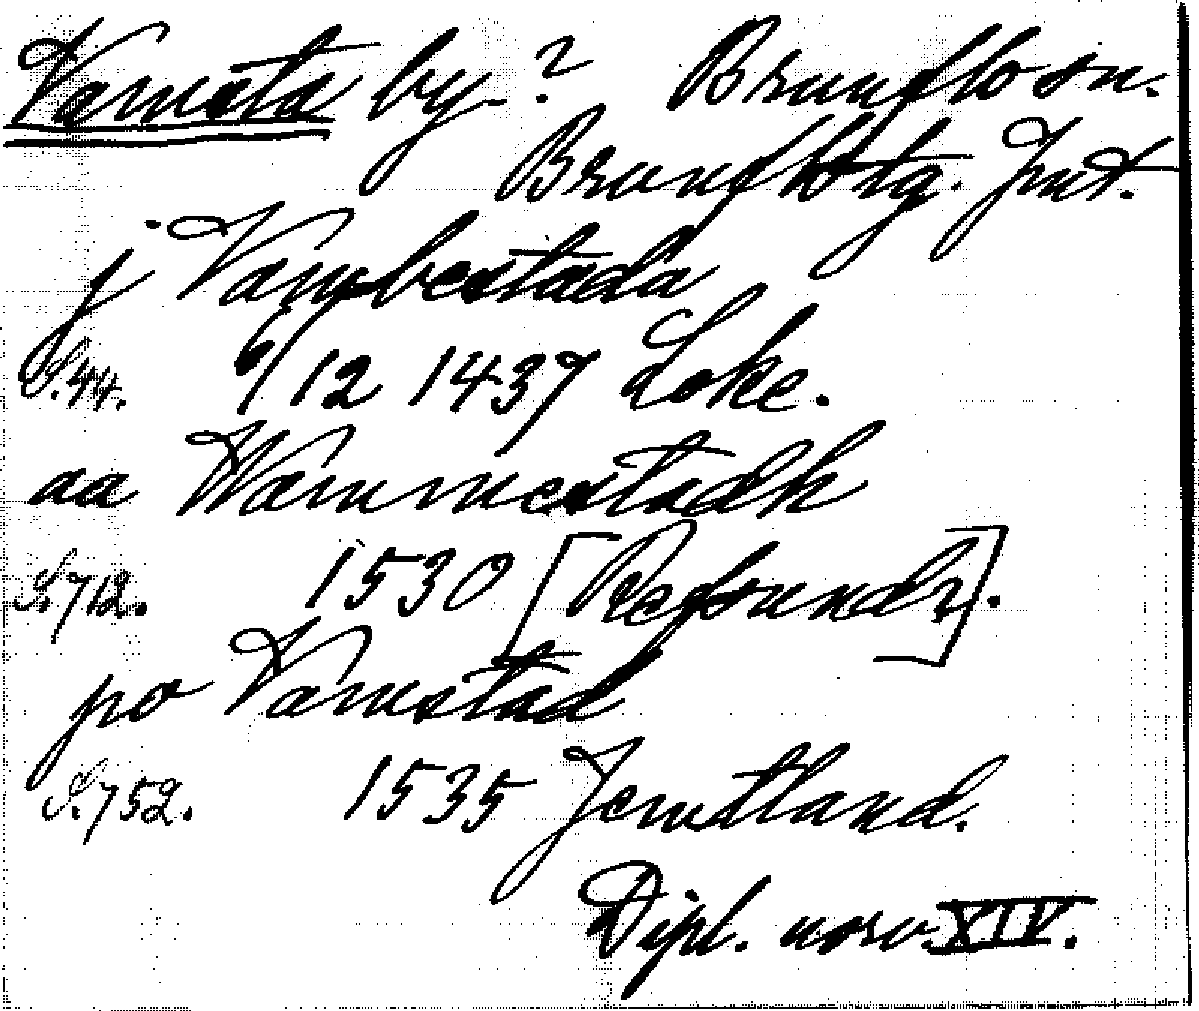 Vamsta by.? Brunflo sn.
Brunflo tg. Jmt.
j Vambestada
S.44. 6/12 1437 Loke.
aa Wammestadh
S.712. 1530 [Refsundr].
po Vamstad
S.752. 1535 Jemtland.
Dipl. norv. XIV.